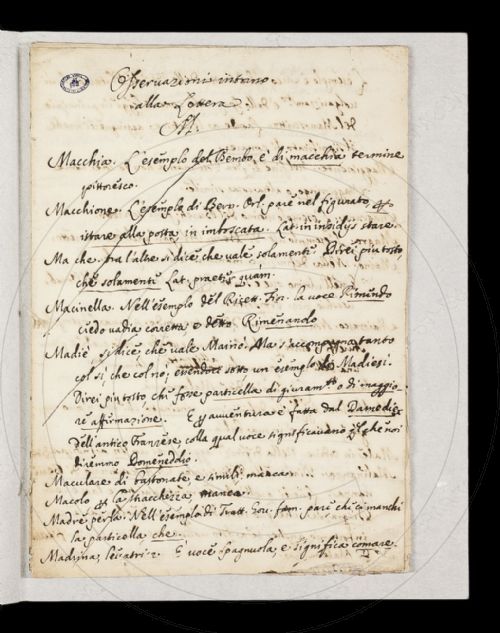 Osservazioni intorno
alla Lettera
M
Macchia. L'esemplo del Bembo è di macchia termine
pittoresco.
Macchione. L'esemplo di Bern. Orl. pare nel figurato, et
istare alla posta in imboscata. Lat. in insidijs stare.
Ma che. tra l'altre si dice che vale solamente. Direi piu tosto,
che solamente Lat. praeter quam.
Macinella. Nell'esemplo del Ricett. Fior. la voce Rimundo
credo vadia corretta e detto Rimenandolo
Madiè si dice che vale Maino. Ma s'accompagna tanto
col si, che col no, essendoci sotto un esemplo di Madiesi.
Direi piu tosto che fosse particella di giuram.to o di maggio
re affirmazione. E per avventura è fatta dal Damedies
dell'antico Franzese, colla qual voce significavano quel che noi
diremmo Domeneddio.
Maculare di bastonate, e simili manca.
Macolo per la stracchezza manca.
Madre perla. Nell'esemplo di Tratt. Gov. fam. pare che ci manchi
la particella che.
Madrina, levatrice. È voce spagnuola, e significa comare.